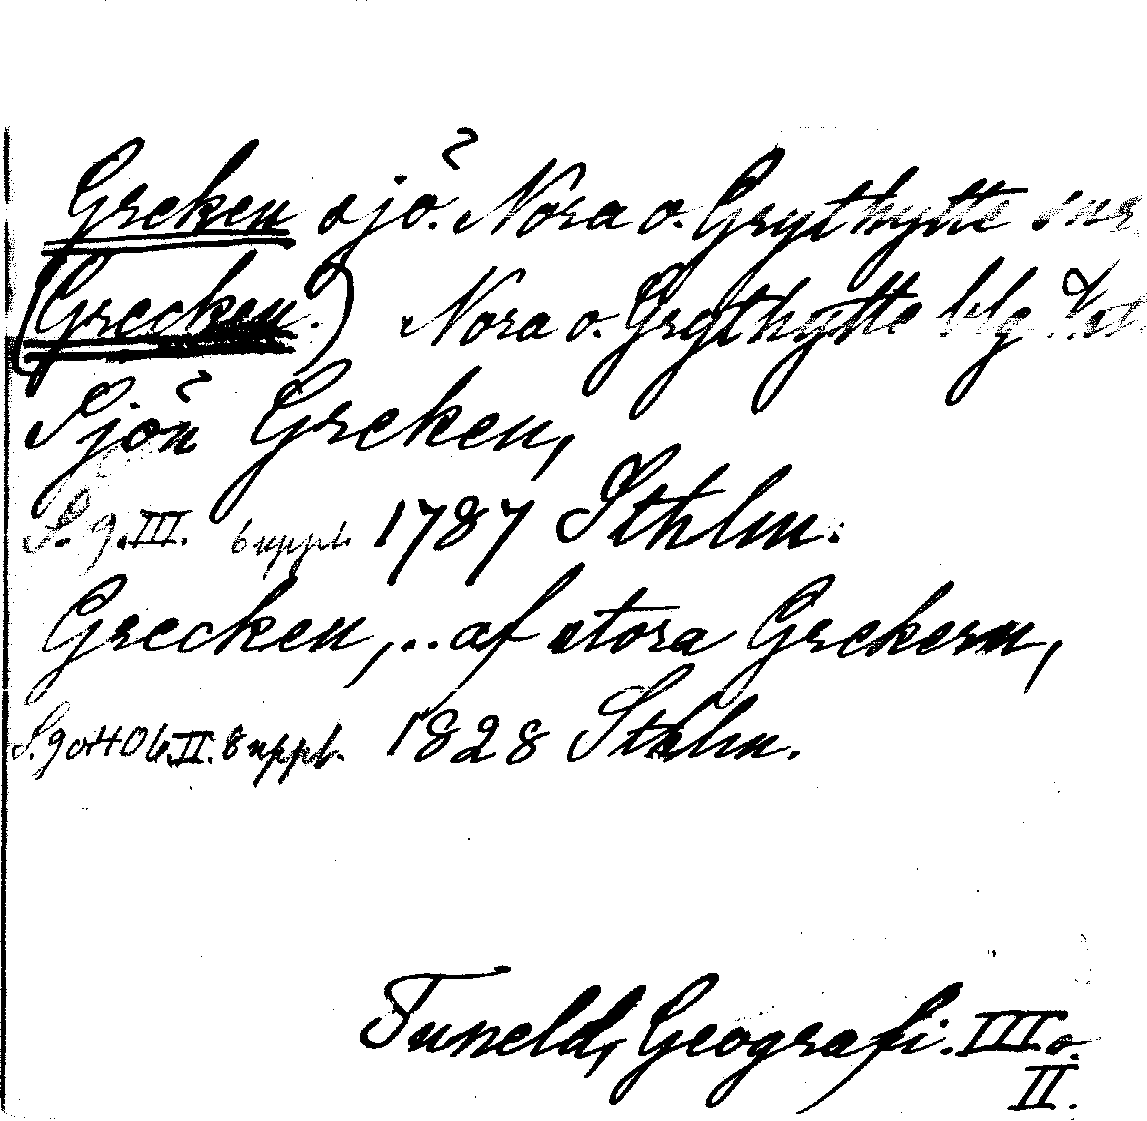 Greken sjö. Nora o. Grythytte snr
(Grecken.) Nora o. Grythytte blg
Sjön Greken,
S. 9. III. 6 uppl. 1787 Sthlm.
Grecken,.. af stora Grekern,
II. 8 uppl. 1828 Sthlm.
Tuneld, Geografi. III o.
II.